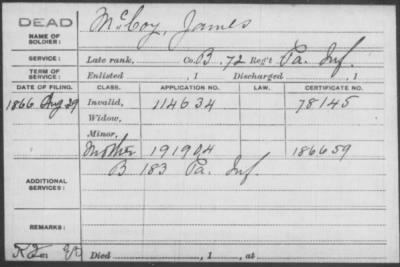 DEAD
NAME OF SOLDIER: McCoy, James
SERVICE: Late rank, Co. B, 72 Reg't Pa. Inf.
TERM OF SERVICE: Enlisted , 1 Discharged , 1
DATE OF FILING. CLASS. APPLICATION NO. LAW. CERTIFICATE NO.
1866 Aug 29 Invalid, 114634 78145
Widow,
Minor,
Mother 191904 186659
ADDITIONAL SERVICES: B 183 Pa. Inf.
REMARKS:
Died , 1 , at